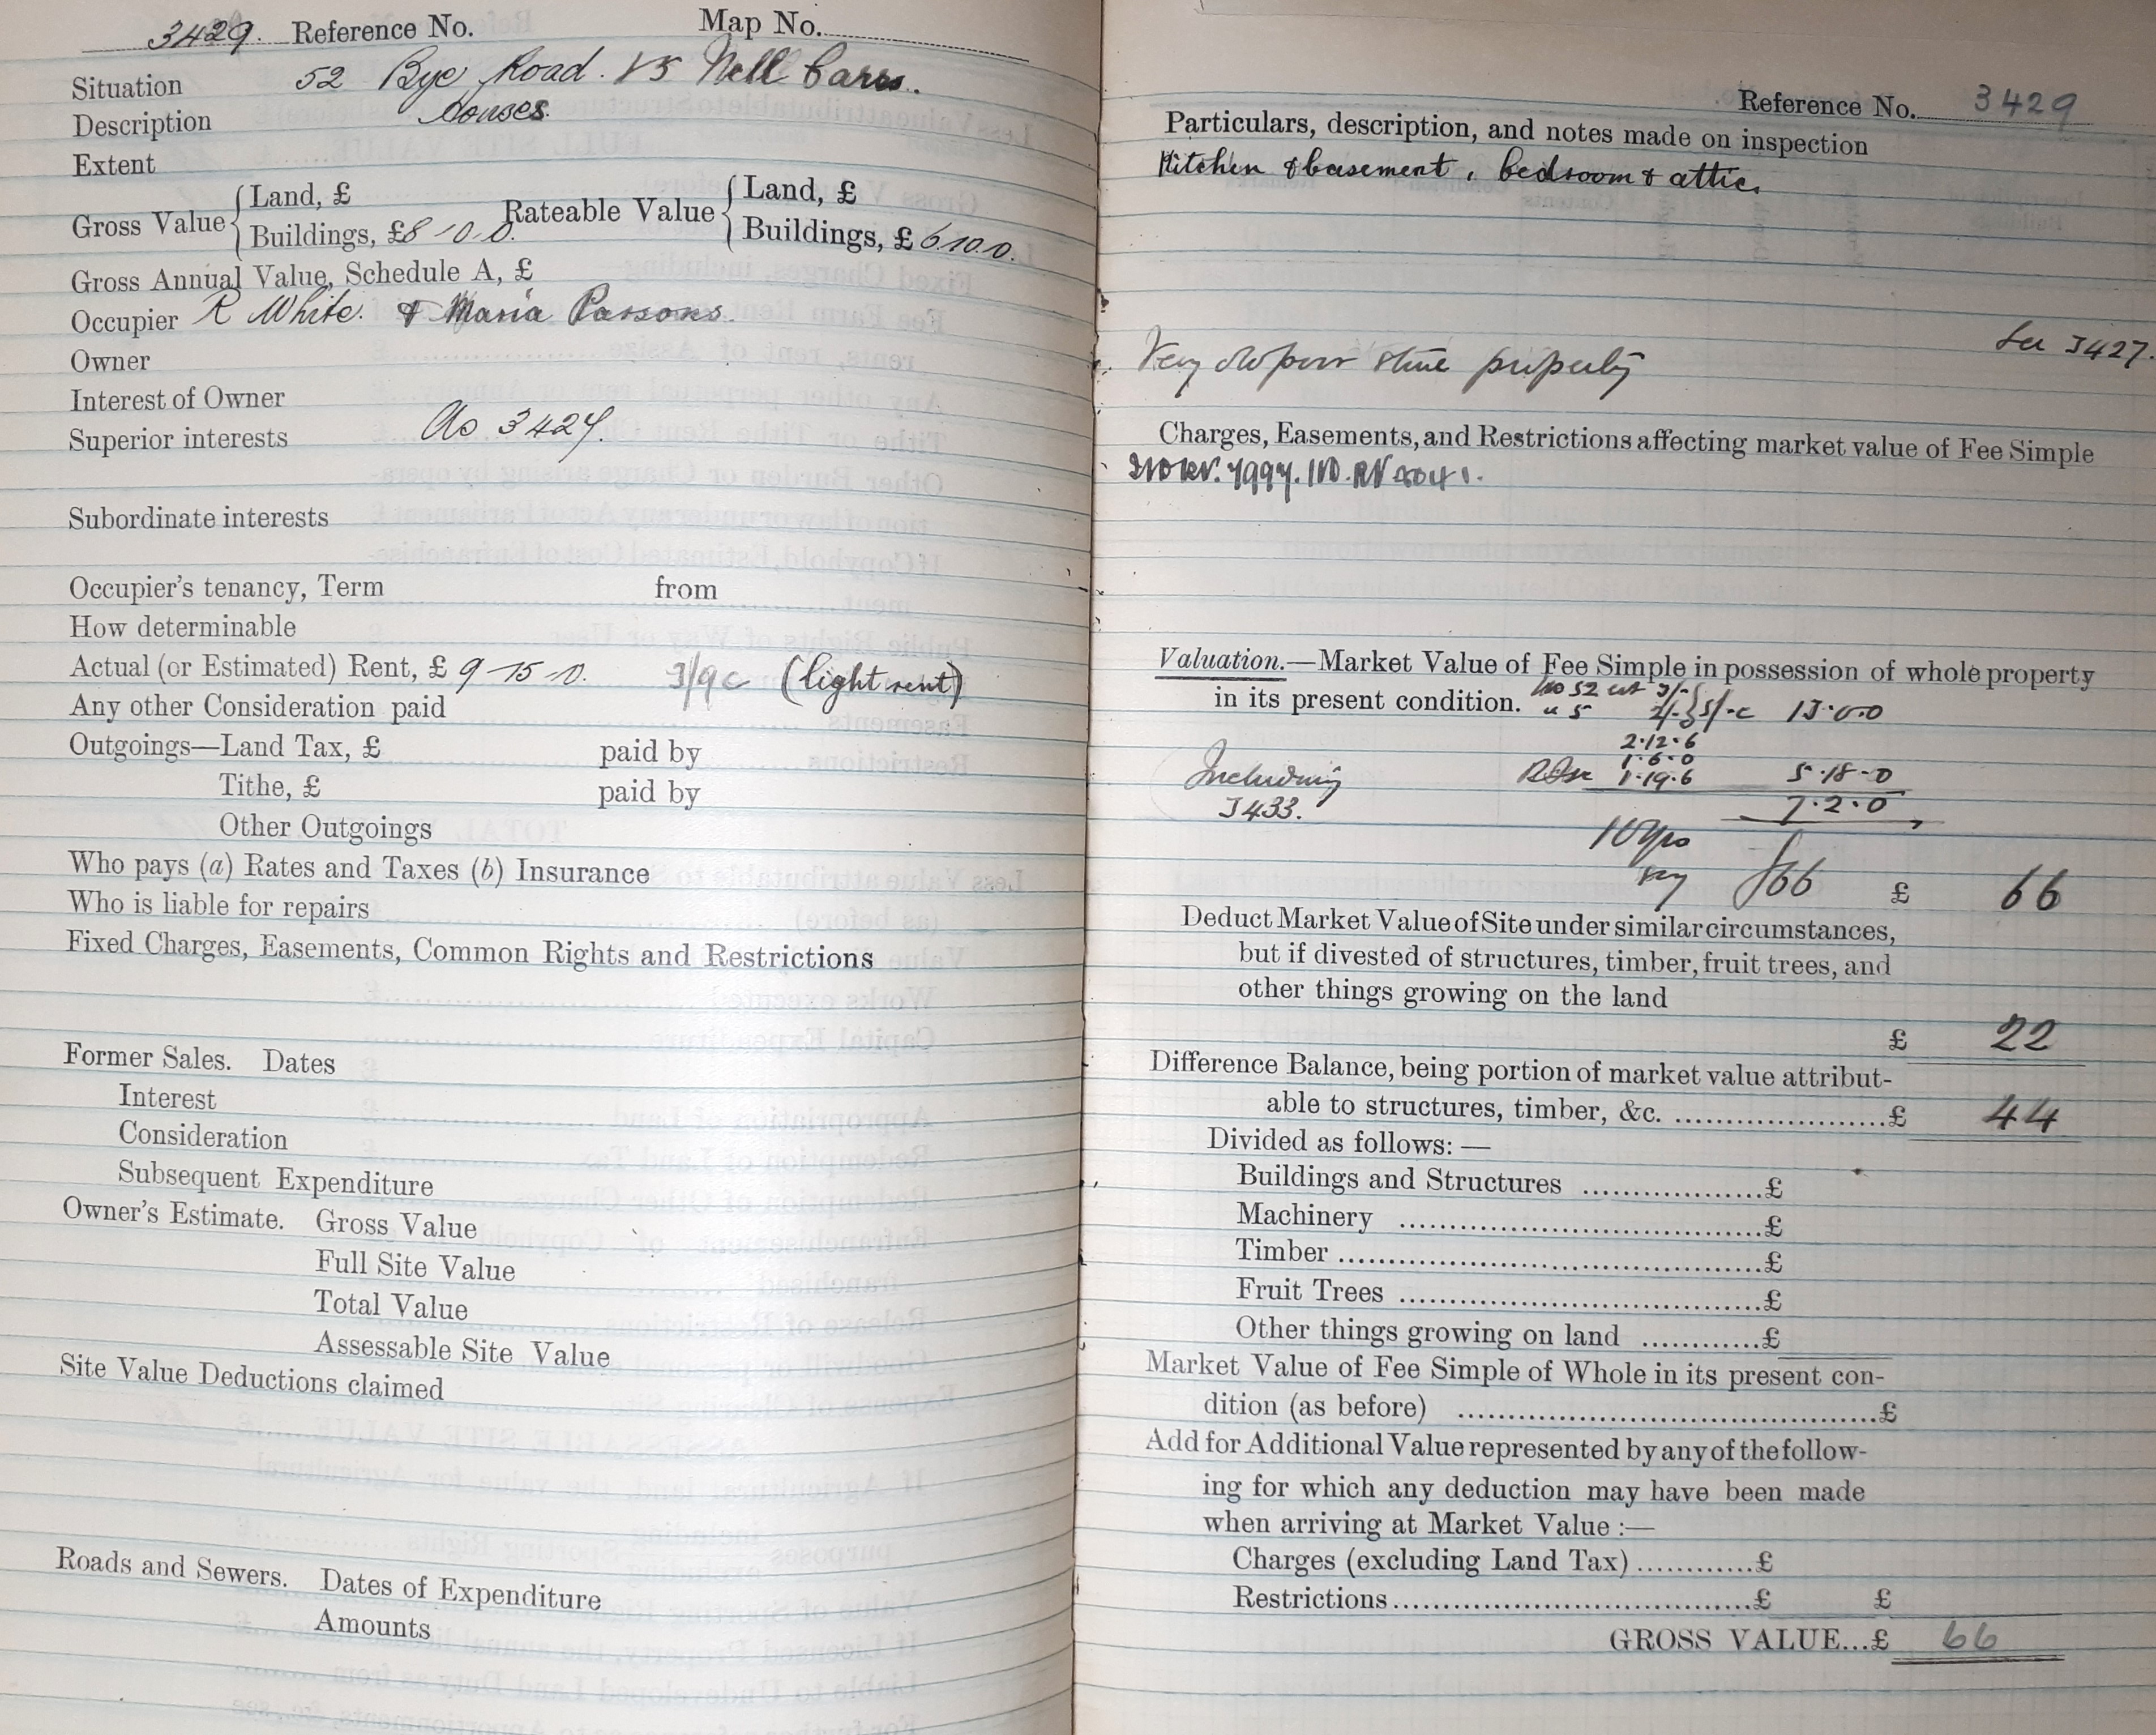 3429. Reference No. Map No.
Situation 52 Bye Road. & 5 Nell Carrs.
Description houses.
Extent
Gross Value { Land, £ Rateable Value { Land, £
Buildings, £8-0-0. Buildings, £ 6.10.0.
Gross Annual Value, Schedule A, £
Occupier R White. & Maria Parsons.
Owner
Interest of Owner
Superior interests As 3427.
Subordinate interests
Occupier's tenancy, Term from
How determinable
Actual (or Estimated) Rent, £ 9-15-0. 3/9 c (light rent)
Any other Consideration paid
Outgoings—Land Tax, £ paid by
Tithe, £ paid by
Other Outgoings
Who pays (a) Rates and Taxes (b) Insurance
Who is liable for repairs
Fixed Charges, Easements, Common Rights and Restrictions
Former Sales. Dates
Interest
Consideration
Subsequent Expenditure
Owner's Estimate. Gross Value
Full Site Value
Total Value
Assessable Site Value
Site Value Deductions claimed
Roads and Sewers. Dates of Expenditure
Amounts
Reference No. 3429
Particulars, description, and notes made on inspection
Kitchen & basement, bedroom & attic.
See 3427.
Very old poor stone property
Charges, Easements, and Restrictions affecting market value of Fee Simple
Valuation.—Market Value of Fee Simple in possession of whole property
in its present condition. No 52 at 3/- } 5/- c 13.0.0
" 5 2/-
2.12.6
1.6.0
Including 1.19.6 5.18-0
3433. 7.2.0
say £66 £ 66
Deduct Market Value of Site under similar circumstances,
but if divested of structures, timber, fruit trees, and
other things growing on the land
£ 22
Difference Balance, being portion of market value attribut-
able to structures, timber, &c. ......................£ 44
Divided as follows: —
Buildings and Structures ...................£
Machinery ......................................£
Timber .............................................£
Fruit Trees ......................................£
Other things growing on land ............£
Market Value of Fee Simple of Whole in its present con-
dition (as before) .............................................£
Add for Additional Value represented by any of the follow-
ing for which any deduction may have been made
when arriving at Market Value :—
Charges (excluding Land Tax)............£
Restrictions......................................£ £
GROSS VALUE...£ 66